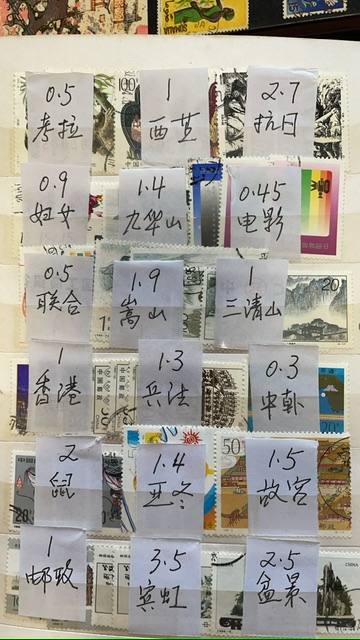 SOMALIA
0.5
考拉
1
西芷
2.7
抗日
0.9
妇女
1.4
九华山
0.45
电影
0.5
联合
1.9
嵩山
1
三清山
20
1
香港
1.3
兵法
0.3
中韩
2
鼠
1.4
亚冬
50
1.5
故宫
1
邮政
3.5
宾虹
2.5
盆景
CHINA